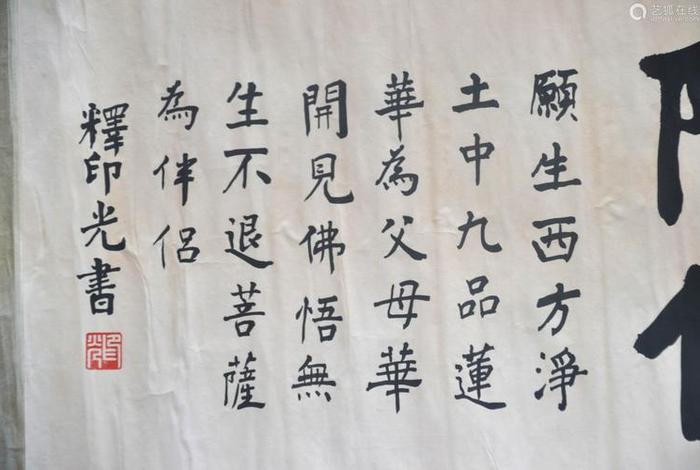 願生西方淨
土中九品蓮
華為父母華
開見佛悟無
生不退菩薩
為伴侶
釋印光書
艺狐在线